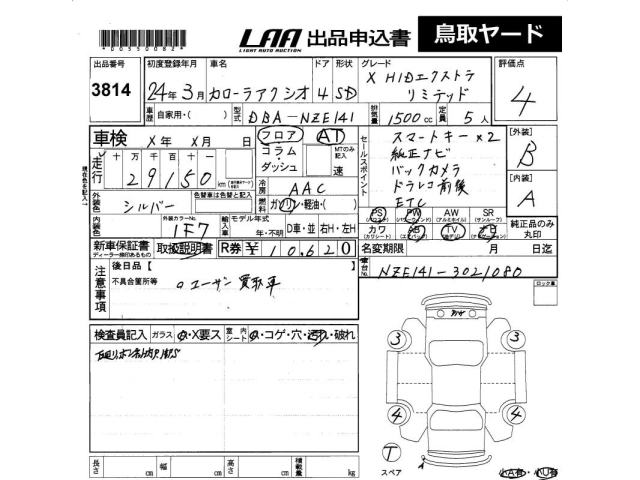 *00550082*
LAA 出品申込書 鳥取ヤード
LIGHT AUTO AUCTION
出品番号 初度登録年月 車名 ドア 形状 グレード 評価点
3814 24年3月 カローラアクシオ 4 SD X HIDエクストラ
リミテッド 4
車歴 自家用・( ) 型式 DBA-NZE141 排気量 1500cc 定員 5人
車検 X年 X月 日 フロア AT
コラム・ MTのみ記入
ダッシュ 速
セールスポイント スマートキー×2
純正ナビ
バックカメラ
ドラレコ前後
ETC
[外装] B
[内装] A
走行 十 万 千 百 十
29150 km
冷房 AAC
外装色 シルバー 色替車は色替と記入
燃料 ガソリン・軽油・( )
PS PW AW SR
カワ AB TV ナビ
純正品のみ
丸印
内装色 外装カラーNo. 1F7 輸入車 モデル年式
年・不明 D車・並 右H・左H
新車保証書 取扱説明書 R券 ¥10,620
ディーラー捺印あるもの
名変期限 月 日迄
車台No. NZE141-3021080
注意事項 後日品【 】
不具合箇所等 ユーザー買取車
ロック車
検査員記入 ガラス X要ス 室内シート コゲ・穴・汚れ・破れ
3 3
4 4
T
スペア
長さ cm 幅 cm 高さ cm 積載量 kg
小A有・小U有